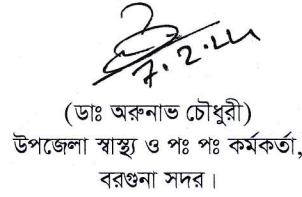 ৮.২.২২
(ডাঃ অরুনাভ চৌধুরী)
উপজেলা স্বাস্থ্য ও পঃ পঃ কর্মকর্তা,
বরগুনা সদর।